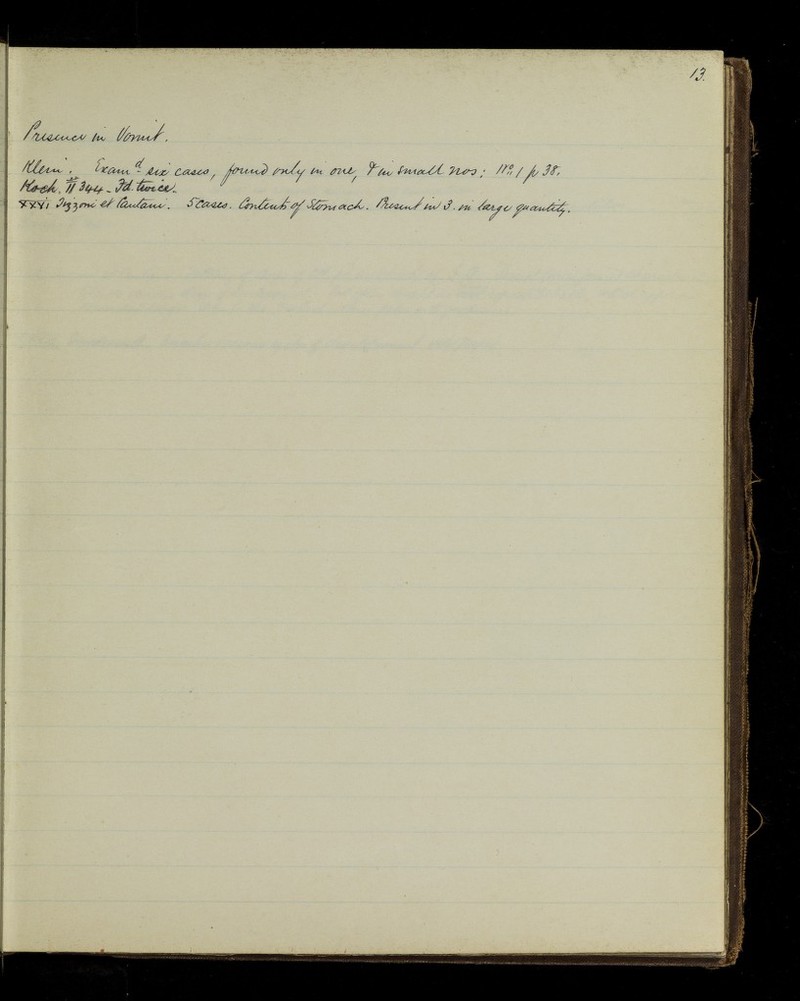 13.
Presence in Vomit.
Klein. Examd six cases, found only in one, & in small nos: No. 1 p 38.
Koch. II 344 - Fd. twice.
XXVI Tizzoni et Cantani. 5 cases. Contents of Stomach. Present in 3. in large quantity.